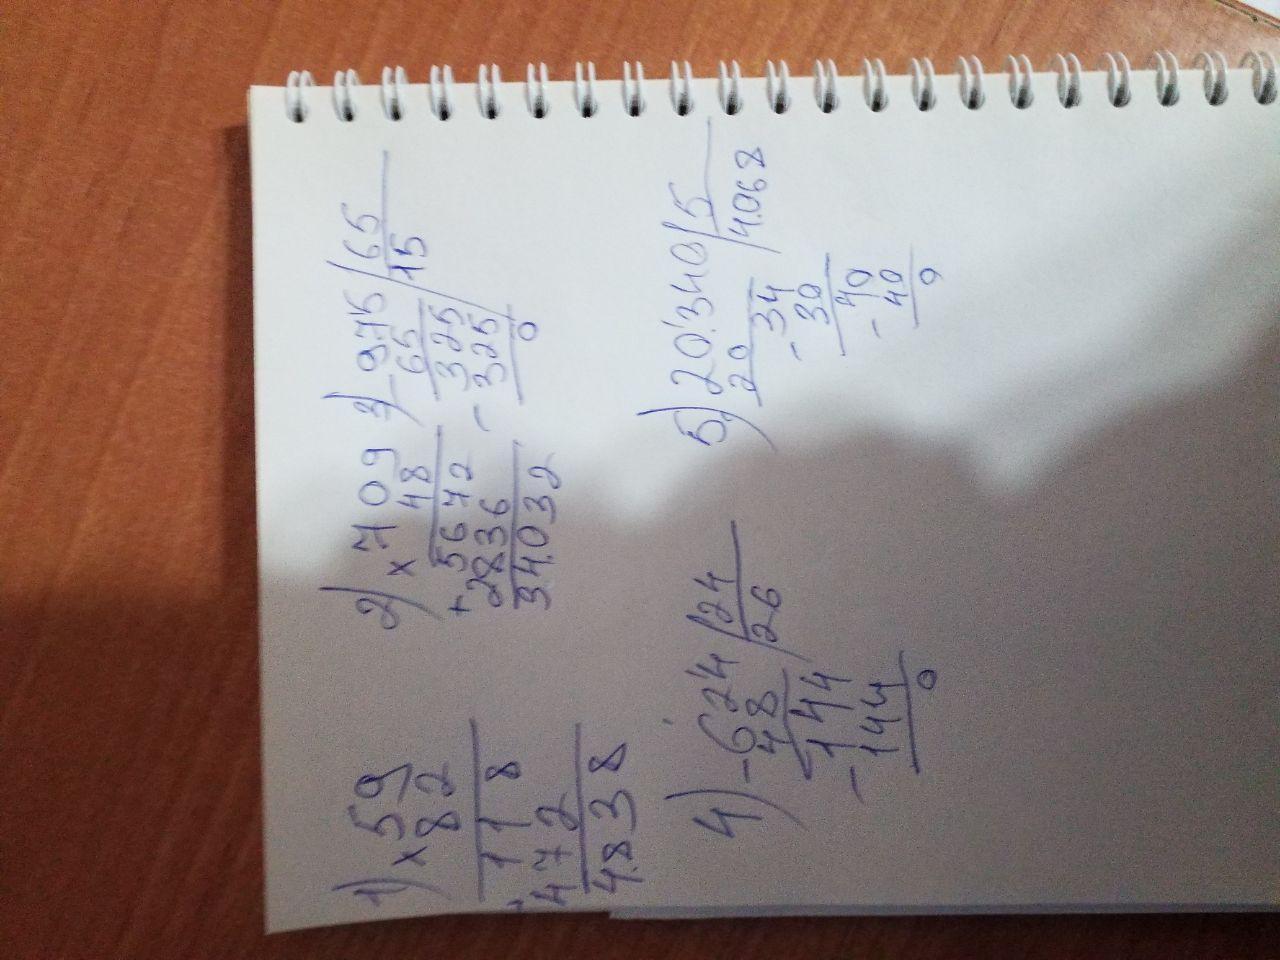 1) × 59
82
118
+ 472
4.838
2) × 709
48
5672
+ 2836
34.032
3) - 975 | 65
65 15
325
- 325
0
4) - 624 | 24
48 26
144
- 144
0
5) 20.340 | 5
20 4.068
34
- 30
40
- 40
0